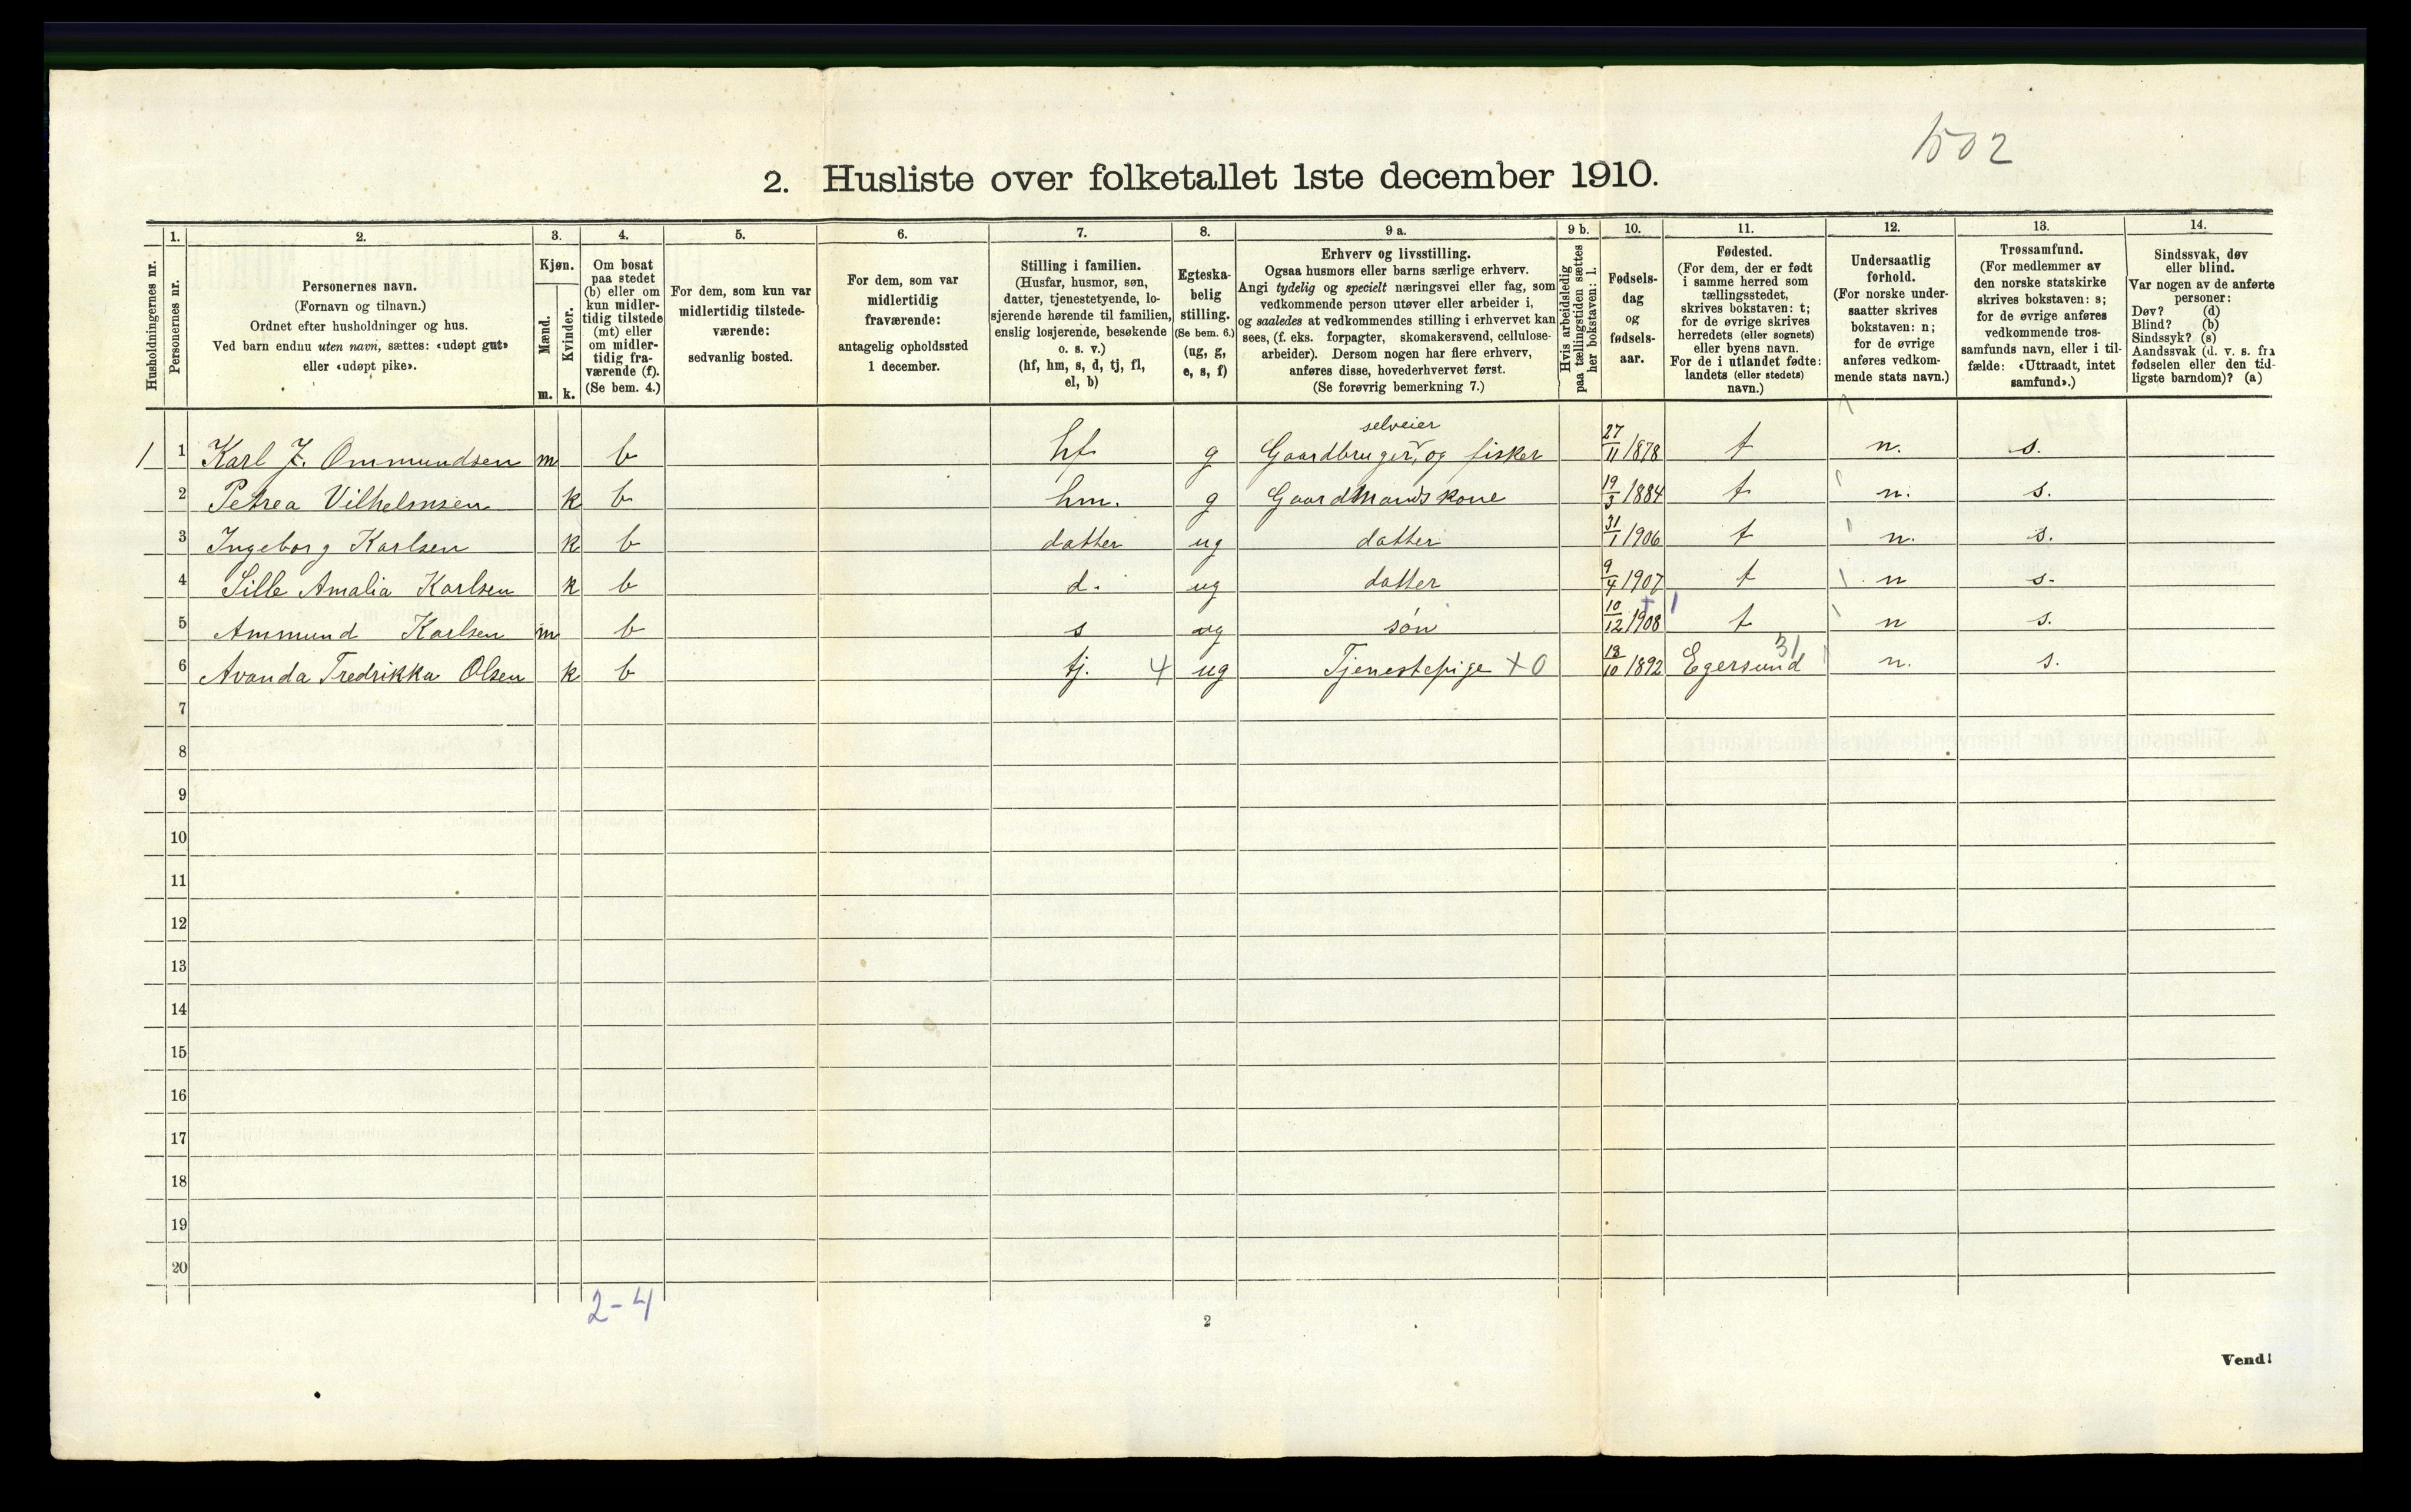 1502
2. Husliste over folketallet 1ste december 1910.
Husholdningernes nr.
1. Personernes nr.
2. Personernes navn.
(Fornavn og tilnavn.)
Ordnet efter husholdninger og hus.
Ved barn endnu uten navn, sættes: «udøpt gut»
eller «udøpt pike».
3. Kjøn.
Mænd. m.
Kvinder. k.
4. Om bosat
paa stedet
(b) eller om
kun midler-
tidig tilstede
(mt) eller
om midler-
tidig fra-
værende (f).
(Se bem. 4.)
5. For dem, som kun var
midlertidig tilstede-
værende:
sedvanlig bosted.
6. For dem, som var
midlertidig
fraværende:
antagelig opholdssted
1 december.
7. Stilling i familien.
(Husfar, husmor, søn,
datter, tjenestetyende, lo-
sjerende hørende til familien,
enslig losjerende, besøkende
o. s. v.)
(hf, hm, s, d, tj, fl,
el, b)
8. Egteska-
belig
stilling.
(Se bem. 6.)
(ug, g,
e, s, f)
9 a. Erhverv og livsstilling.
Ogsaa husmors eller barns særlige erhverv.
Angi tydelig og specielt næringsvei eller fag, som
vedkommende person utøver eller arbeider i,
og saaledes at vedkommendes stilling i erhvervet kan
sees, (f. eks. forpagter, skomakersvend, cellulose-
arbeider). Dersom nogen har flere erhverv,
anføres disse, hovederhvervet først.
(Se forøvrig bemerkning 7.)
9 b. Hvis arbeidsledig
paa tællingstiden sættes
her bokstaven: l.
10. Fødsels-
dag
og
fødsels-
aar.
11. Fødested.
(For dem, der er født
i samme herred som
tællingsstedet,
skrives bokstaven: t;
for de øvrige skrives
herredets (eller sognets)
eller byens navn.
For de i utlandet fødte:
landets (eller stedets)
navn.)
12. Undersaatlig
forhold.
(For norske under-
saatter skrives
bokstaven: n;
for de øvrige
anføres vedkom-
mende stats navn.)
13. Trossamfund.
(For medlemmer av
den norske statskirke
skrives bokstaven: s;
for de øvrige anføres
vedkommende tros-
samfunds navn, eller i til-
fælde: «Uttraadt, intet
samfund».)
14. Sindssvak, døv
eller blind.
Var nogen av de anførte
personer:
Døv? (d)
Blind? (b)
Sindssyk? (s)
Aandssvak (d. v. s. fra
fødselen eller den tid-
ligste barndom)? (a)
selveier
1 1 Karl J. Ommundsen m b hf g Gaardbruger, og fisker 27/11 1878 t n. s.
2 Petrea Vilhelmsen k b hm. g Gaardmandskone 19/3 1884 t n. s.
3 Ingeborg Karlsen k b datter ug datter 31/1 1906 t n. s.
4 Sille Amalia Karlsen k b d. ug datter 9/4 1907 t n s.
5 Ammund Karlsen m b s ug søn 10/12 1908 t n s.
31
6 Avanda Fredrikka Olsen k b tj. 4 ug Tjenestepige x 0 18/10 1892 Egersund n. s.
7
8
9
10
11
12
13
14
15
16
17
18
19
20
2-4
2
Vend!